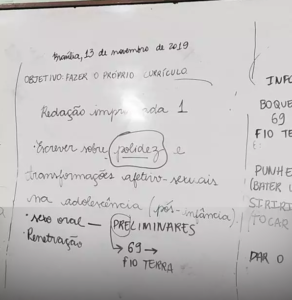 Brasília, 13 de novembro de 2019
OBJETIVO: FAZER O PRÓPRIO CURRÍCULO
Redação improvisada 1
· Escrever sobre polidez e
transformações afetivo-sexuais
na adolescência (pós-infância).
· sexo oral — PRELIMINARES
· Penetração
→ 69 →
FIO TERRA
INFO
BOQUE
69
FIO TE
PUNHE
(BATER
SIRIRI
TOCAR
DAR O